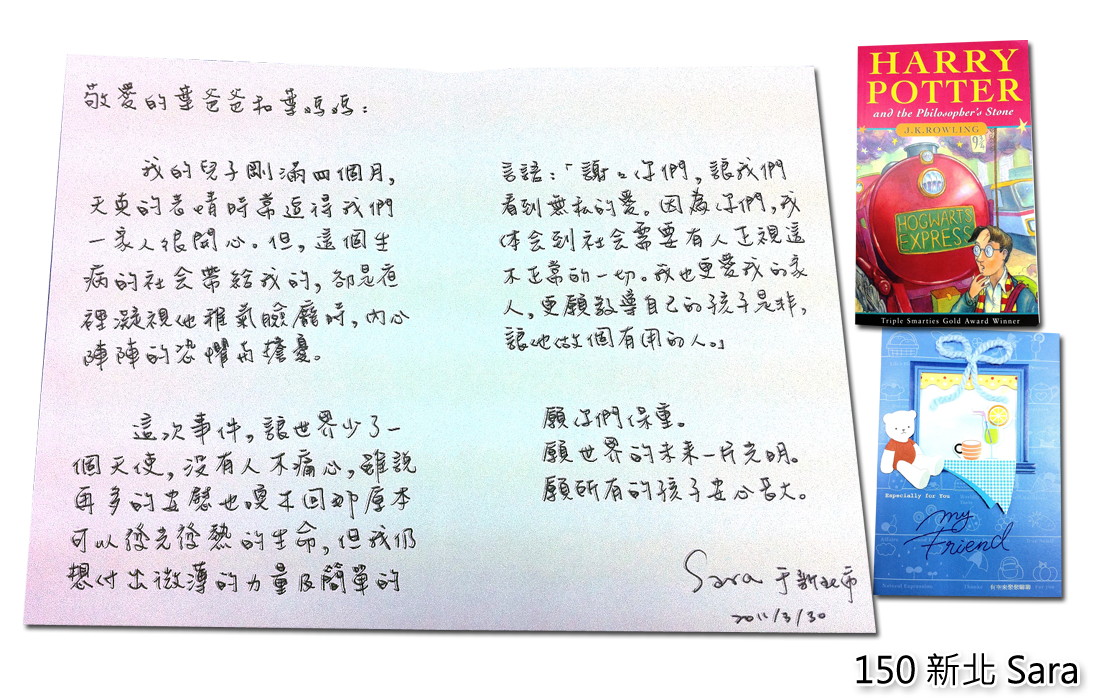 敬愛的葉爸爸和葉媽媽：
我的兒子剛滿四個月，
天真的表情時常逗得我們
一家人很開心。但，這個生
病的社会帶給我的，卻是夜
裡凝視他稚氣臉龐時，內心
陣陣的恐懼和擔憂。
這次事件，讓世界少了一
個天使，沒有人不痛心，雖說
再多的安慰也喚不回那原本
可以發光發熱的生命，但我仍
想付出微薄的力量及簡單的
言語：「謝謝你們，讓我們
看到無私的愛。因為你們，我
体会到社会需要有人正視這
不正常的一切。我也更愛我的家
人，更願教導自己的孩子是非，
讓他做個有用的人。」
願你們保重。
願世界的未來一片光明。
願所有的孩子安心長大。
Sara 于新北市
2011/3/30
HARRY
POTTER
and the Philosopher's Stone
J.K.ROWLING
9¾
HOGWARTS
EXPRESS
Triple Smarties Gold Award Winner
Especially for You
my
Friend
150 新北 Sara